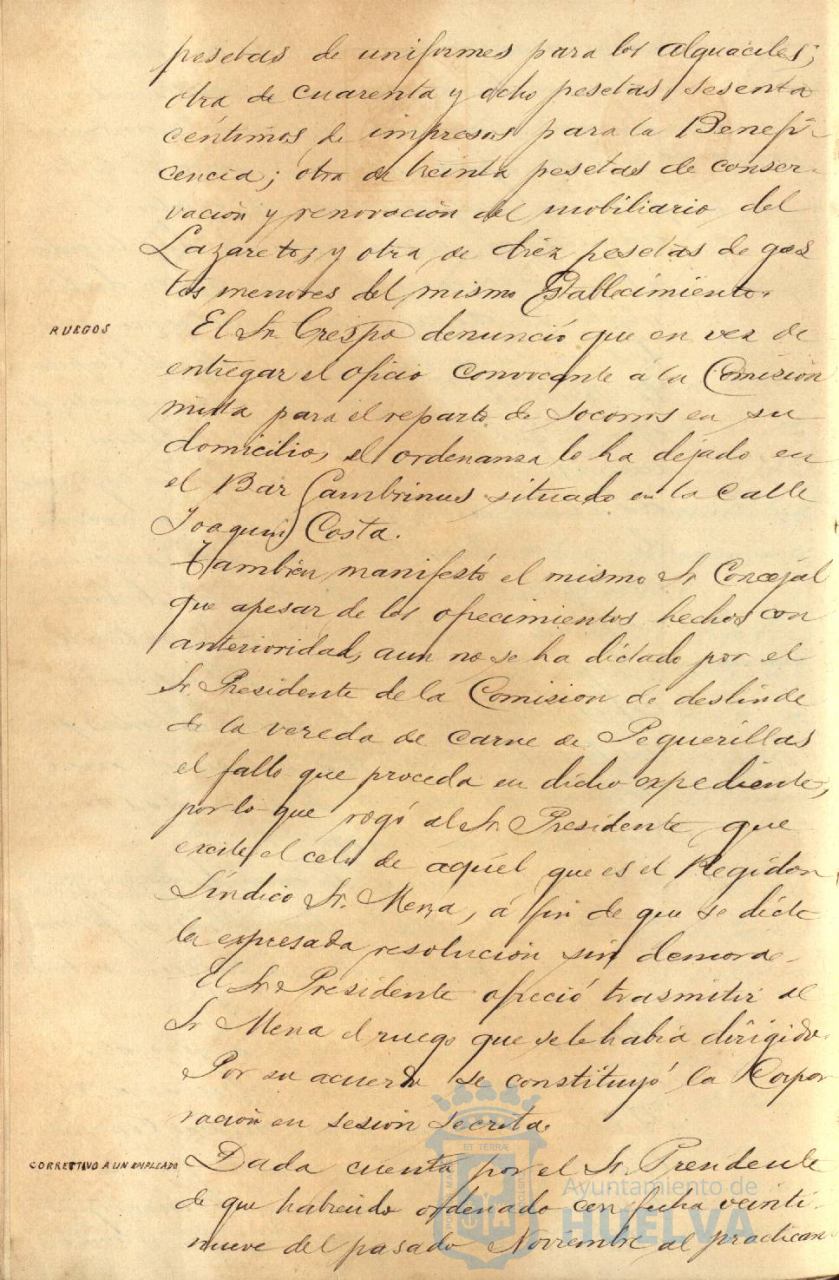 pesetas de uniformes para los alguaciles;
otra de cuarenta y ocho pesetas sesenta
céntimos de impresos para la Benefi-
cencia; otra de treinta pesetas de conser-
vación y renovación del mobiliario del
Lazareto, y otra de diez pesetas de gas
tos menores del mismo Establecimiento.
RUEGOS
El Sr. Crespo denunció que en vez de
entregar el oficio convocante a la Comision
mixta para el reparto de socorros en su
domicilio, el ordenanza lo ha dejado en
el Bar Cambrinus situado en la calle
Joaquin Costa.
También manifestó el mismo Sr Concejal
que apesar de los ofrecimientos hechos con
anterioridad, aun no se ha dictado por el
Sr. Presidente de la Comision de deslinde
de la vereda de carne de Peguerillas
el fallo que proceda en dicho expediente,
por lo que rogó al Sr. Presidente que
excite el celo de aquel que es el Regidor
Síndico Sr. Mena, á fin de que se dicte
la expresada resolución sin demora.
El Sr. Presidente ofreció trasmitir al
Sr Mena el ruego que se le había dirigido.
Por su acuerdo se constituyó la Corpo-
ración en sesion secreta.
CORRECTIVO A UN EMPLEADO
Dada cuenta por el Sr. Presidente
de que habiendo ordenado con fecha veinti-
nueve del pasado Noviembre al practican
ET TERRÆ
Ayuntamiento de
HUELVA